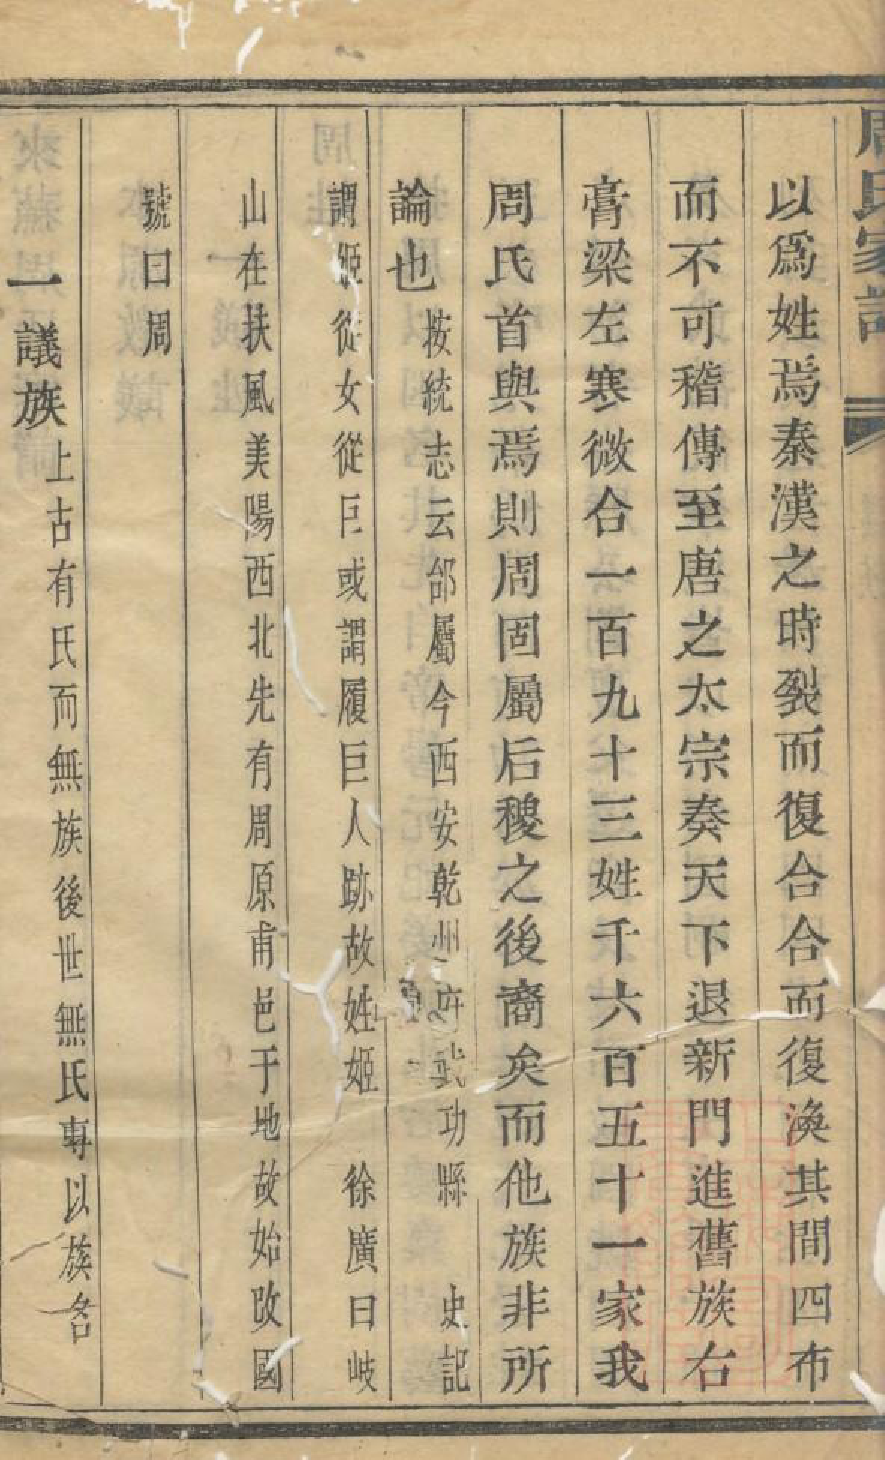 周氏家譜
以爲姓焉秦漢之時裂而復合合而復渙其間四布
而不可稽傳至唐之太宗奏天下退新門進舊族右
膏梁左寒微合一百九十三姓千六百五十一家我
周氏首與焉則周固屬后稷之後裔矣而他族非所
論也 按統志云邰屬今西安乾州府武功縣 史記
謂姬從女從巨或謂履巨人跡故姓姬 徐廣曰岐
山在扶風美陽西北先有周原甫邑于地故始改國
號曰周
一議族 上古有氏而無族後世無氏專以族名